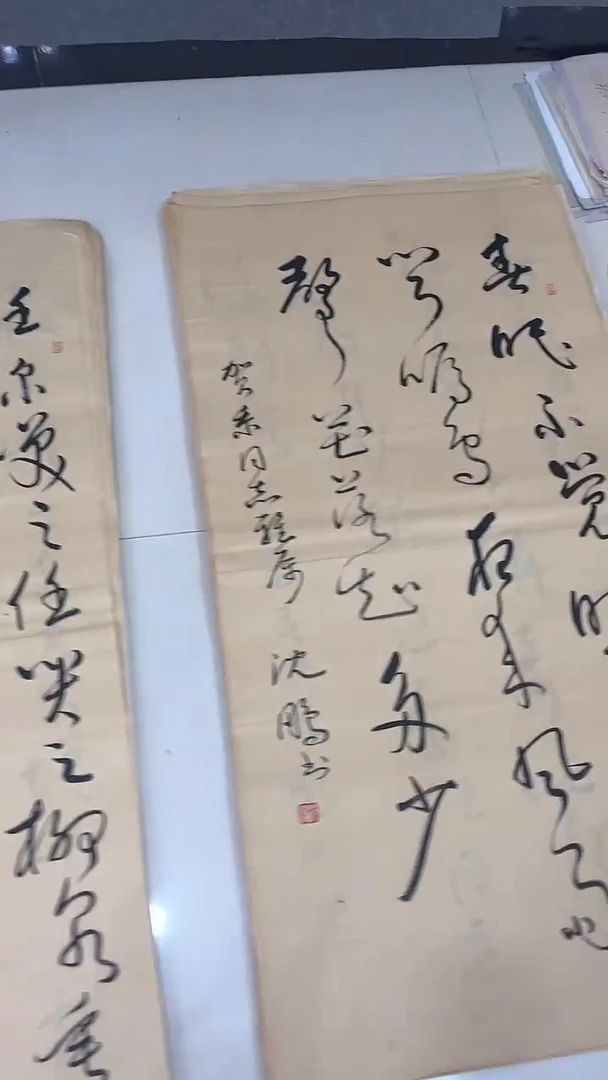 春眠不觉晓
闻啼鸟夜来风雨
声花落知多少
贺 同志雅属
沈鹏书
之任哭之柳泉